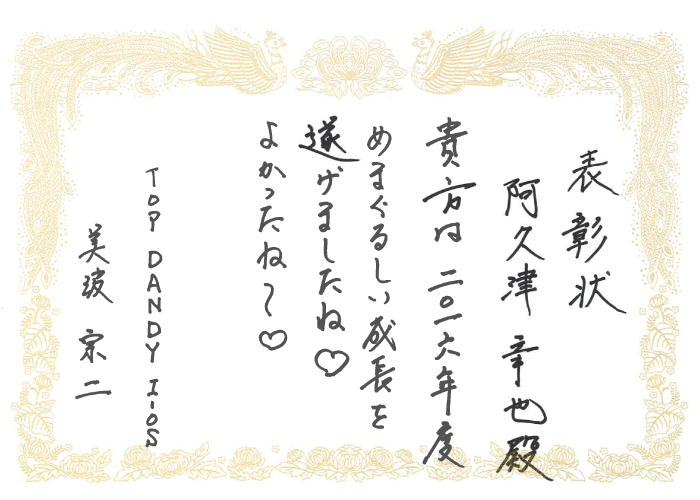 表彰状
阿久津 幸也殿
貴方は 二〇一六年度
めまぐるしい成長を
遂げましたね♡
よかったね〜♡
TOP DANDY I-OS
美波 宗二